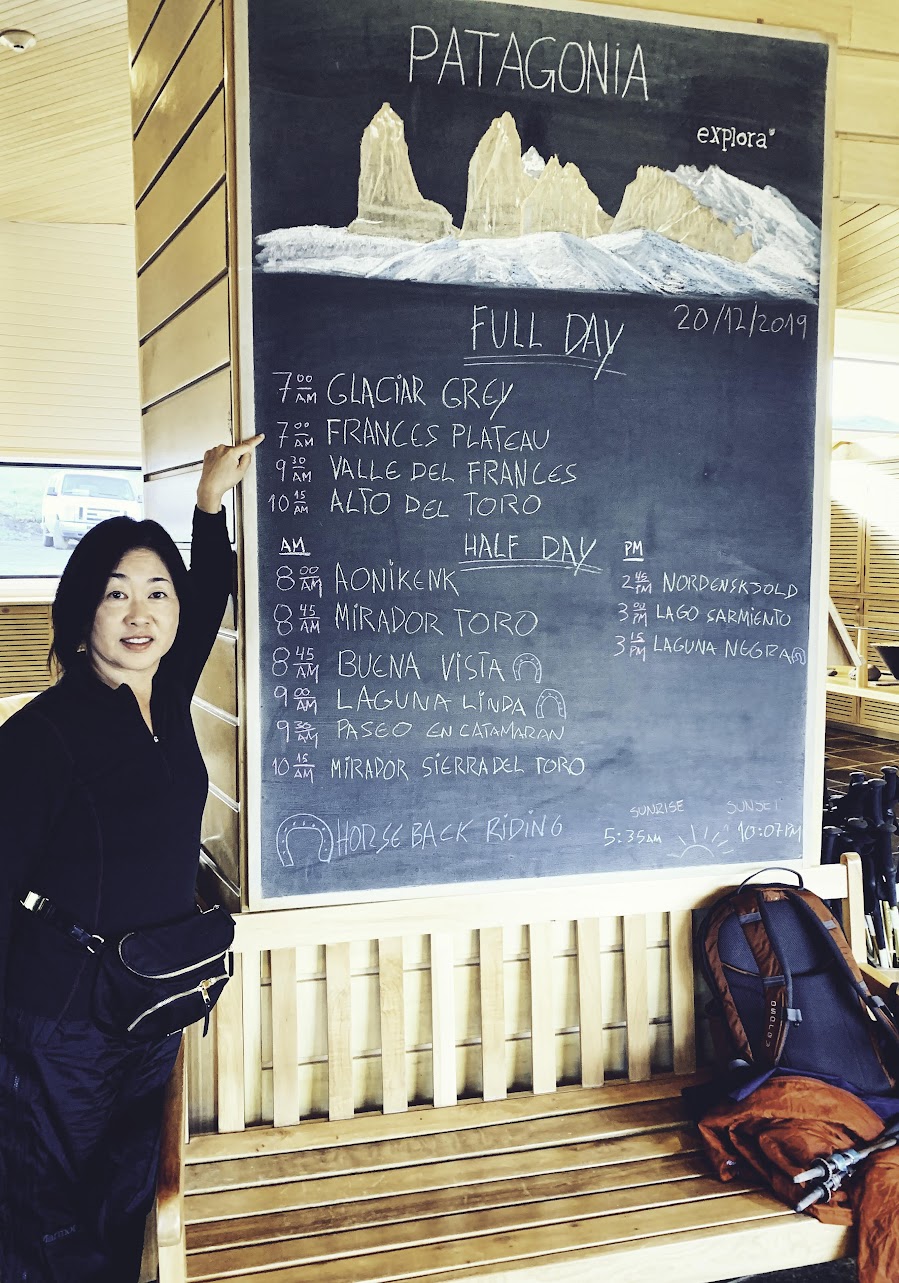 PATAGONIA
explora
20/12/2019
FULL DAY
7 00 AM GLACIAR GREY
7 00 AM FRANCES PLATEAU
9 30 AM VALLE DEL FRANCES
10 15 AM ALTO DEL TORO
HALF DAY
AM
8 00 AM AONIKENK
8 45 AM MIRADOR TORO
8 45 AM BUENA VISTA
9 00 AM LAGUNA LINDA
9 30 AM PASEO EN CATAMARAN
10 15 AM MIRADOR SIERRA DEL TORO
PM
2 45 PM NORDENSKSOLD
3 00 PM LAGO SARMIENTO
3 15 PM LAGUNA NEGRA
HORSE BACK RIDING
SUNRISE
5:35 AM
SUNSET
10:07 PM
osprey